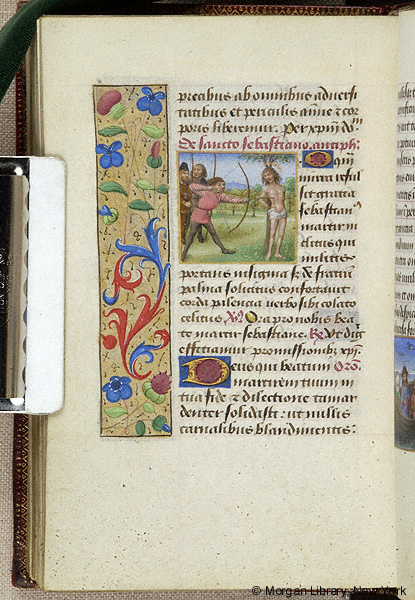 precibus ab omnibus adversi
tatibus et periculis anime & cor
poris liberemur. Per xpm dnm
De sancto sebastiano. antiph:
O qua
mira reful
sit gratia
sebastian9
martir in
clitus qui
militis
portans insignia s; de fratrum
palma solicitus confortavit
corda palencia verbo sibi colato
celitus. V. Ora pro nobis bea
te martir sebastiane. R. Ut dig
efficiamur promissionib; xpi.
Deus qui beatum Oro.
martirem tuum in
tua fide & dilectione tam ar
denter solidasti: ut nullis
carnalibus blandimentis:
© Morgan Library, New York